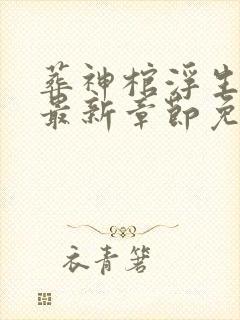 葬神棺浮生
最新章節免
衣青箬